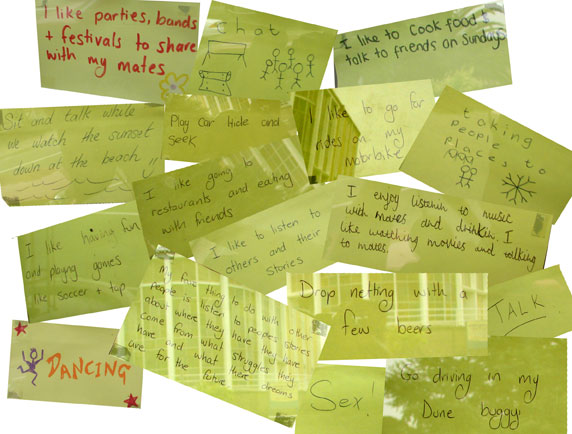 I like parties, bands
+ festivals to share
with my mates
Chat
I like to Cook food &
talk to friends on Sundays
Sit and talk while
we watch the sunset
down at the beach
Play Car Hide and
Seek
I like to go for
rides on my
motorbike
taking
people
places to
I like going to
restaurants and eating
with friends
I enjoy listening to music
with mates and drinkin. I
like watching movies and talking
to mates.
I like having fun
and playing games
like soccer + tap
I like to listen to
others and their
stories
my fave thing to do with other
people is listen to peoples stories
about where they have they have
come from what struggles they
have and what there dreams
are for the future
Drop netting with a
few beers
TALK
DANCING
Sex!
Go driving in my
Dune buggy!